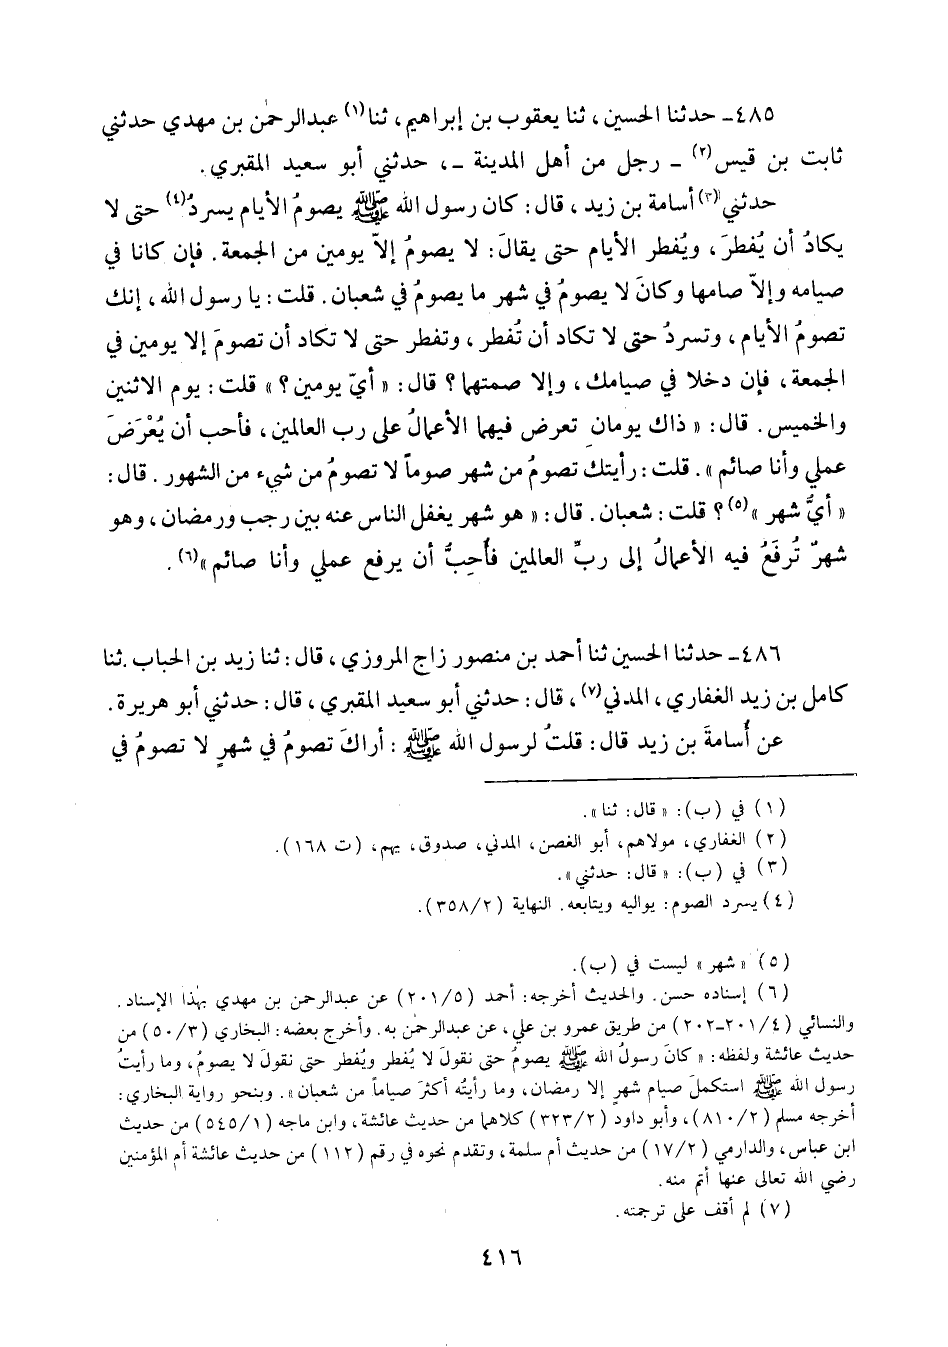 ٤٨٥ـ حدثنا الحسين، ثنا يعقوب بن إبراهيم، ثنا(١) عبدالرحمٰن بن مهدي حدثني
ثابت بن قيس(٢) ـ رجل من أهل المدينة ـ، حدثني أبو سعيد المقبري.
حدثني(٣) أسامة بن زيد، قال: كان رسول الله ﷺ يصومُ الأيام يسردُ(٤) حتى لا
يكادُ أن يُفطرَ، ويُفطر الأيام حتى يقالَ: لا يصومُ إلاّ يومين من الجمعة. فإن كانا في
صيامه وإلاّ صامها وكانَ لا يصومُ في شهر ما يصومُ في شعبان. قلت: يا رسول الله، إنك
تصومُ الأيام، وتسردُ حتى لا تكاد أن تُفطر، وتفطر حتى لا تكاد أن تصومَ إلا يومين في
الجمعة، فإن دخلا في صيامك، وإلا صمتهما؟ قال: «أيّ يومين؟» قلت: يوم الاثنين
والخميس. قال: «ذاك يومانِ تعرض فيهما الأعمالُ على رب العالمين، فأحب أن يُعْرَضَ
عملي وأنا صائم». قلت: رأيتك تصومُ من شهر صوماً لا تصومُ من شيء من الشهور. قال:
«أيُّ شهر»(٥)؟ قلت: شعبان. قال: «هو شهر يغفل الناس عنه بين رجب ورمضان، وهو
شهرٌ تُرفَعُ فيه الأعمالُ إلى ربِّ العالمين فأُحِبُّ أن يرفع عملي وأنا صائم»(٦).
٤٨٦ـ حدثنا الحسين ثنا أحمد بن منصور زاج المروزي، قال: ثنا زيد بن الحباب. ثنا
كامل بن زيد الغفاري، المدني(٧)، قال: حدثني أبو سعيد المقبري، قال: حدثني أبو هريرة.
عن أُسامةَ بن زيد قال: قلتُ لرسول الله ﷺ: أراكَ تصومُ في شهرٍ لا تصومُ في
(١) في (ب): «قال: ثنا».
(٢) الغفاري، مولاهم، أبو الغصن، المدني، صدوق، يهم، (ت ١٦٨).
(٣) في (ب): «قال: حدثني».
(٤) يسرد الصوم: يواليه ويتابعه. النهاية (٣٥٨/٢).
(٥) «شهر» ليست في (ب).
(٦) إسناده حسن. والحديث أخرجه: أحمد (٢٠١/٥) عن عبدالرحمن بن مهدي بهٰذا الإسناد.
والنسائي (٢٠١/٤-٢٠٢) من طريق عمرو بن علي، عن عبدالرحمٰن به. وأخرج بعضه: البخاري (٥٠/٣) من
حديث عائشة ولفظه: «كانَ رسولُ الله ﷺ يصومُ حتى نقولَ لا يُفطر ويُفطر حتى نقولَ لا يصومُ، وما رأيتُ
رسول الله ﷺ استكملَ صيام شهرٍ إلا رمضان، وما رأيتُه أكثرَ صياماً من شعبان». وبنحو رواية البخاري:
أخرجه مسلم (٨١٠/٢)، وأبو داود (٣٢٣/٢) كلاهما من حديث عائشة، وابن ماجه (٥٤٥/١) من حديث
ابن عباس، والدارمي (١٧/٢) من حديث أم سلمة، وتقدم نحوه في رقم (١١٢) من حديث عائشة أم المؤمنين
رضي الله تعالى عنها أتم منه.
(٧) لم أقف على ترجمته.
٤١٦